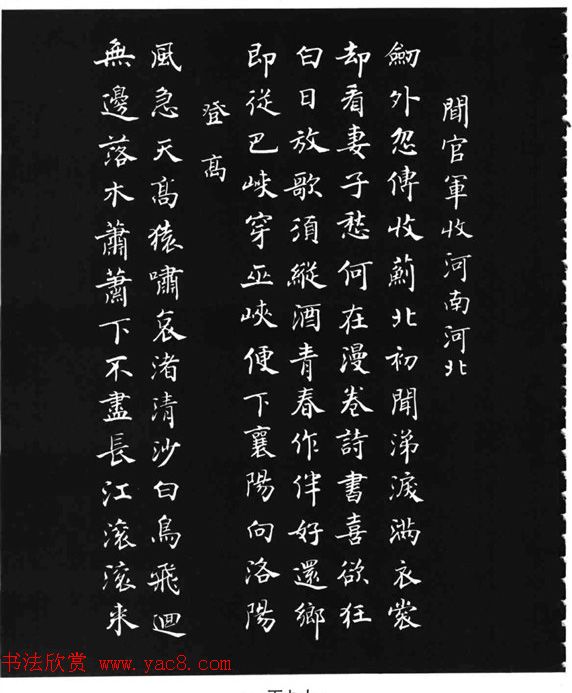 聞官軍收河南河北
劒外忽傳收薊北初聞涕淚滿衣裳
却看妻子愁何在漫卷詩書喜欲狂
白日放歌須縱酒青春作伴好還鄉
即從巴峽穿巫峽便下襄陽向洛陽
登高
風急天高猿嘯哀渚清沙白鳥飛迴
無邊落木蕭蕭下不盡長江滾滾来
书法欣赏 www.yac8.com